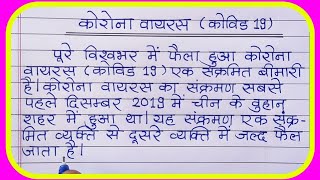 कोरोना वायरस (कोविड 19)
पूरे विश्वभर में फैला हुआ कोरोना
वायरस (कोविड 19) एक संक्रमित बीमारी
है। कोरोना वायरस का संक्रमण सबसे
पहले दिसम्बर 2019 में चीन के वुहान
शहर में हुआ था। यह संक्रमण एक संक्र-
मित व्यक्ति से दूसरे व्यक्ति में जल्द फैल
जाता है।